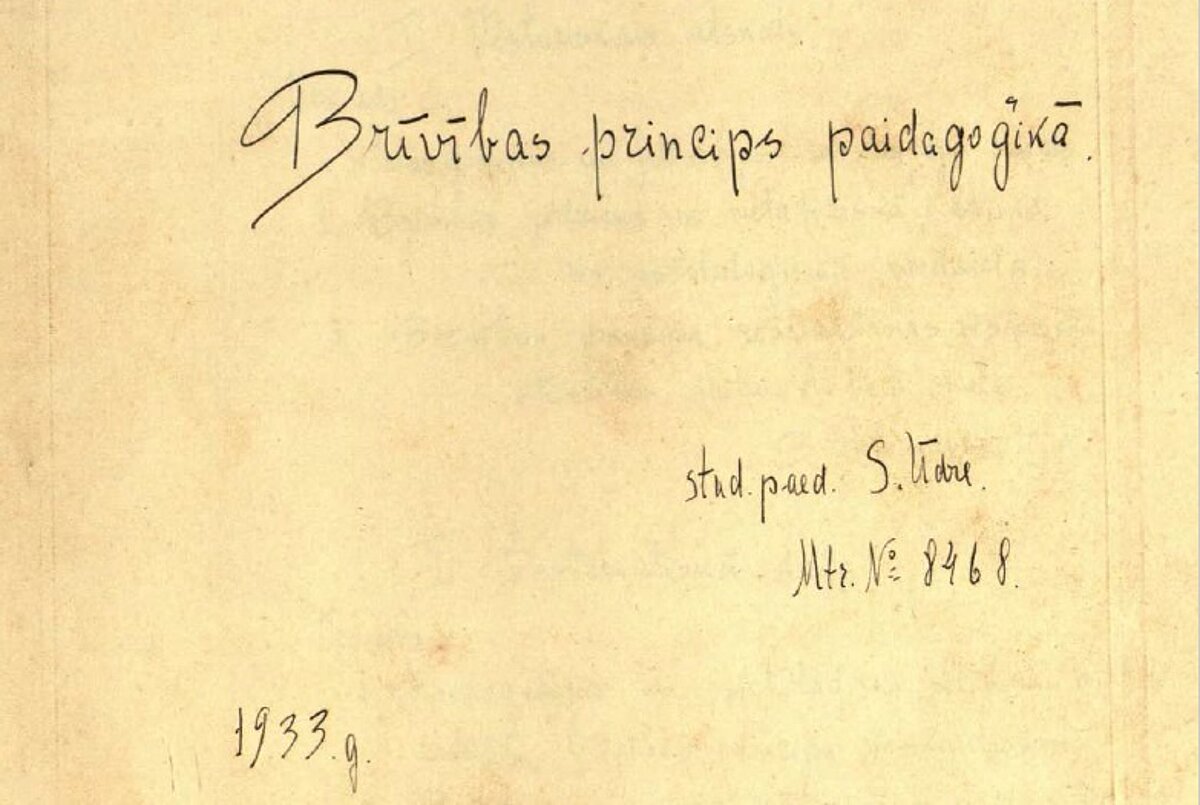 Brīvības princips paidagoģikā.
stud. paed. S. Ūdre.
Mtr. № 8468.
1933. g.